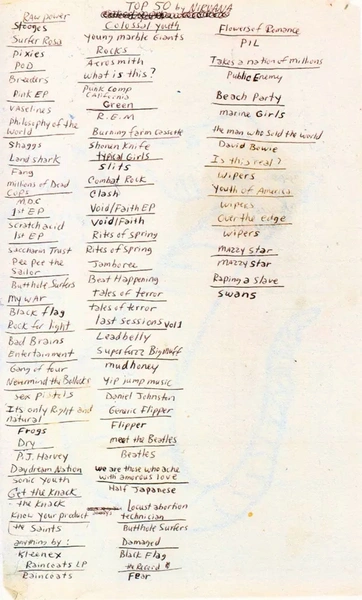 TOP 50 by NIRVANA
Raw power
Stooges
Surfer Rosa
pixies
POD
Breeders
Pink EP
vaselines
Philosophy of the
World
Shaggs
Land shark
Fang
millions of Dead
Cops
M.D.C
1st EP
scratch acid
1st EP
Saccharin Trust
Pee pee the
Sailor
Butthole Surfers
My War
Black flag
Rock for light
Bad Brains
Entertainment
Gang of four
Nevermind the Bollocks
sex pistols
Its only Right and
natural
Frogs
Dry
P.J. Harvey
Daydream Nation
Sonic Youth
Get the Knack
the Knack
Know your product
the Saints
anything by:
Kleenex
Raincoats LP
Raincoats
Colossal Youth
young marble Giants
Rocks
Aerosmith
what is this?
Punk Comp
California
Green
R.E.M
Burning farm Cassette
Shonen Knife
typical Girls
slits
Combat Rock
Clash
Void/Faith EP
Void/Faith
Rites of Spring
Rites of Spring
Jamboree
Beat Happening
tales of terror
tales of terror
last sessions vol 1
Leadbelly
Superfuzz Bigmuff
mudhoney
Yip jump music
Daniel Johnston
Generic Flipper
Flipper
meet the Beatles
Beatles
we are those who ache
with amorous love
Half Japanese
Locust abortion
technician
Butthole Surfers
Damaged
Black Flag
the Record
Fear
Flowers of Romance
PiL
Takes a nation of millions
Public Enemy
Beach Party
marine Girls
the man who sold the world
David Bowie
Is this real?
Wipers
Youth of America
wipers
Over the edge
wipers
Mazzy Star
Mazzy Star
Raping a Slave
Swans